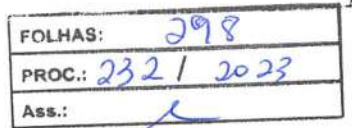 FOLHAS: 298
PROC.: 232 / 2023
Ass.: